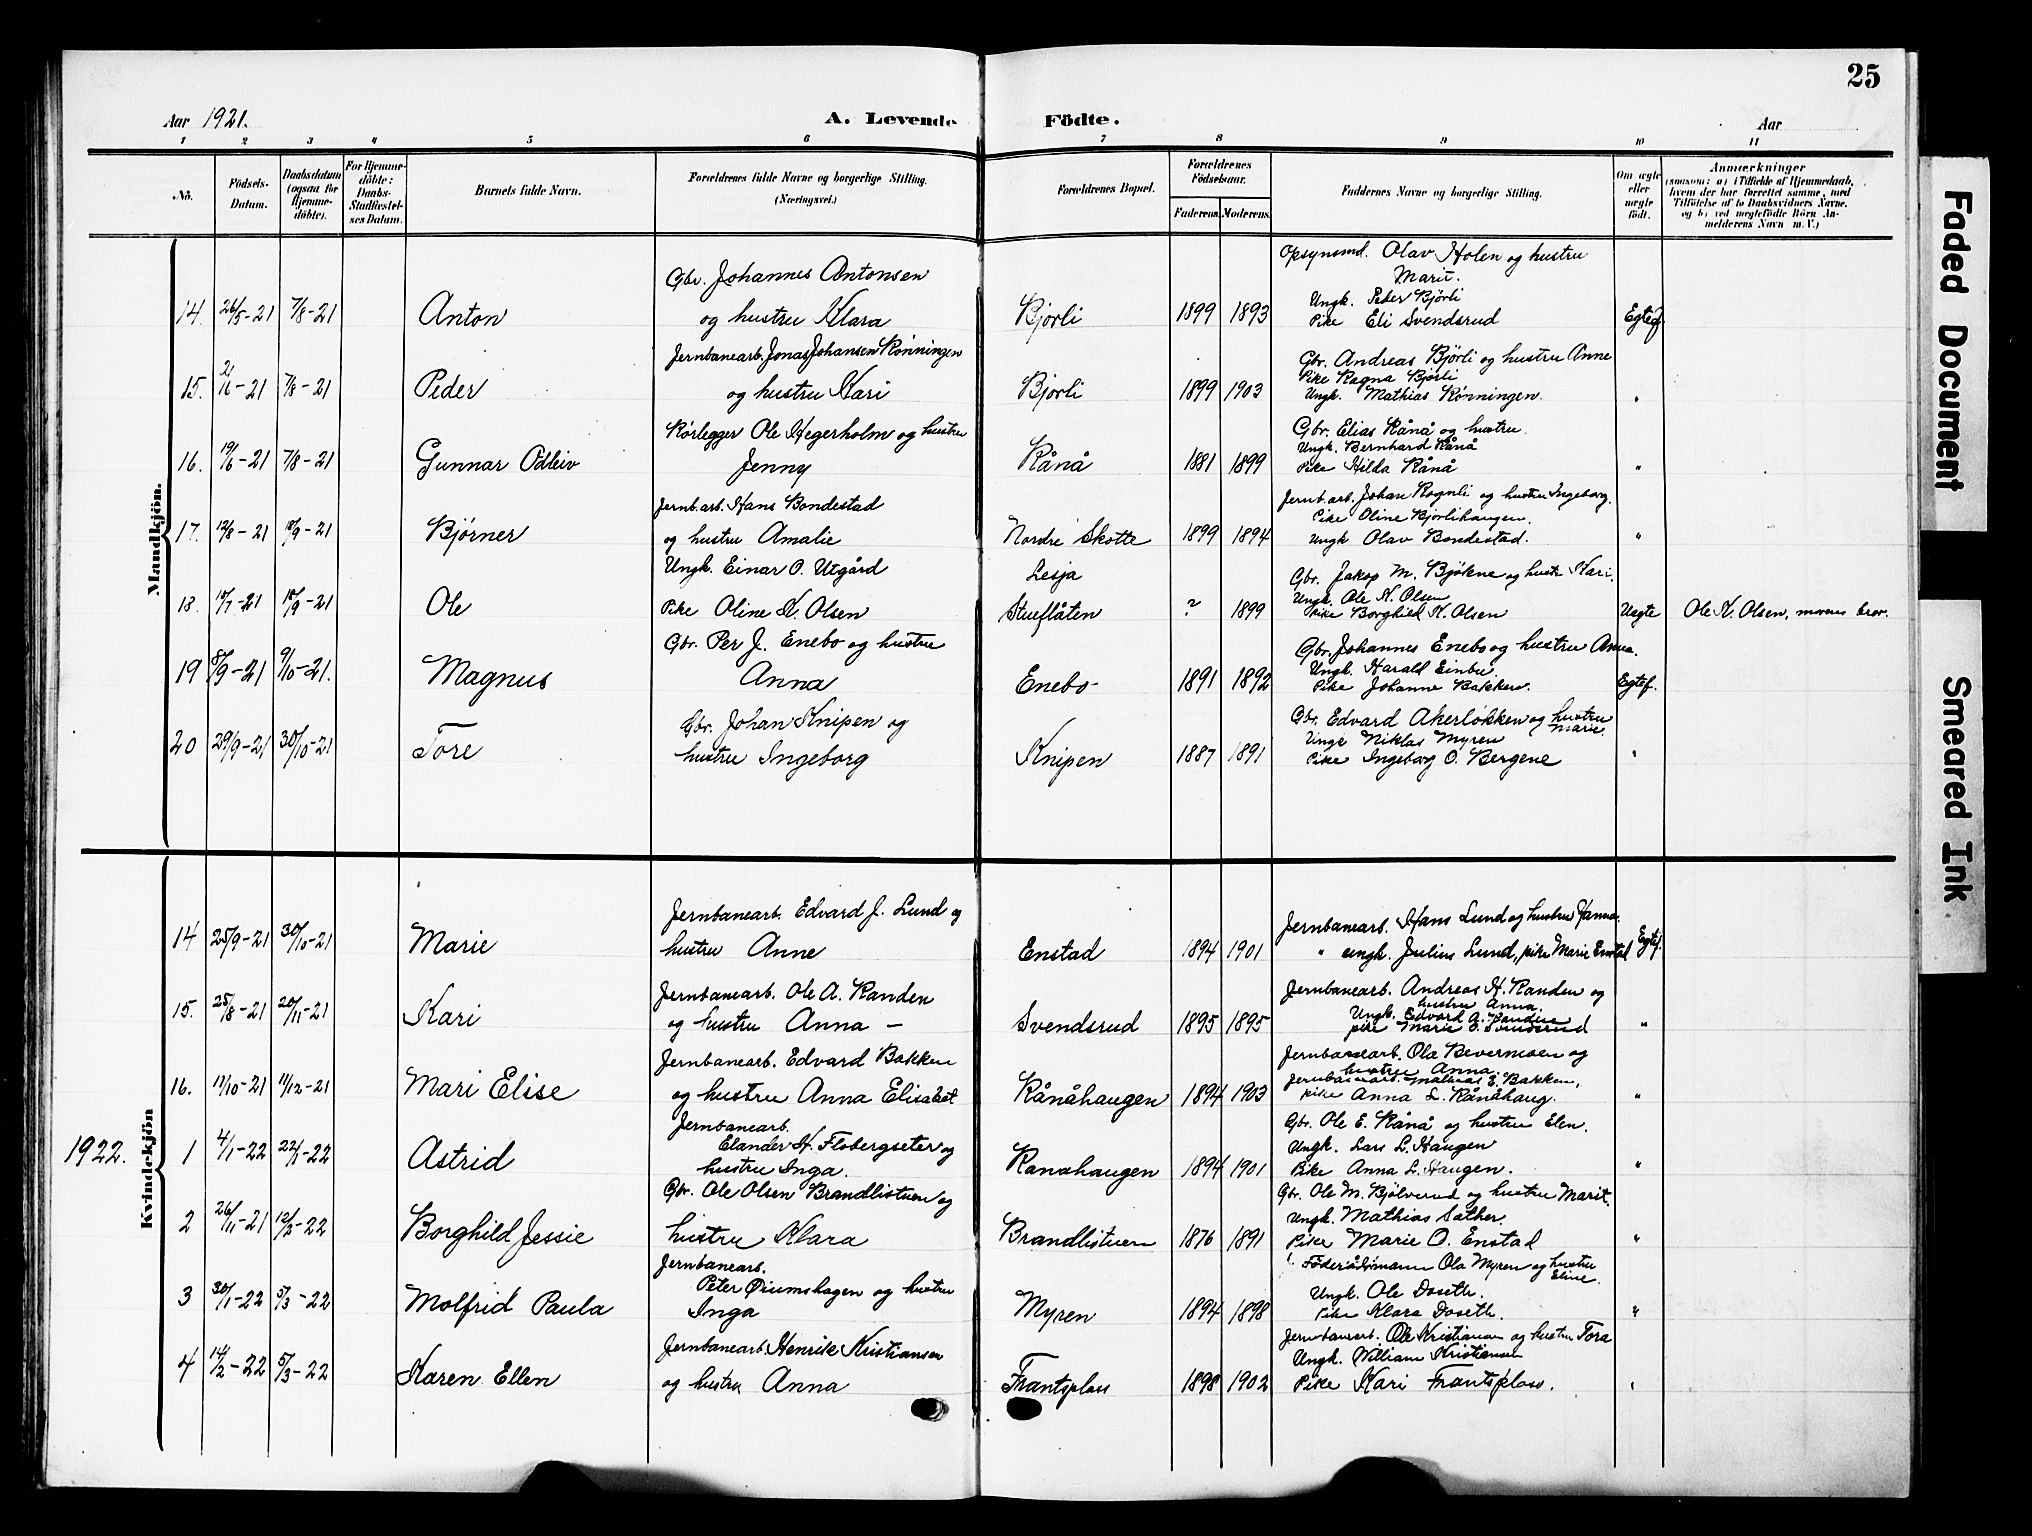 25
Aar 1921. A. Levende Födte. Aar
1 2 3 4 5 6 7 8 9 10 11
No. Födsels-Datum. Daabsdatum (ogsaa for Hjemme-döbte). For Hjemme-döbte: Daabs-Stadfæstel-ses Datum. Barnets fulde Navn. Forældrenes fulde Navne og borgerlige Stilling. (Næringsvei.) Forældrenes Bopæl. Forældrenes Födselsaar. Faderens. Moderens. Faddernes Navne og borgerlige Stilling. Om ægte eller uægte födt. Anmærkninger (saasom: a) i Tilfælde af Hjemmedaab, hvem der har forrettet samme, med Tilföielse af to Daabsvidners Navne, og b) ved uægtefödte Börn An-melderens Navn m. V.)
Mandkjön.
14. 26/5-21 7/8-21 Anton Gbr. Johannes Antonsen og hustru Klara Bjorli 1899 1893 Opsynsmd. Olav Holen og hustru Marit. Ungk. Peder Bjørli Pike Eli Svendsrud Egtef.
15. 2/6-21 7/8-21 Peder Jernbanearb. Jonas Johansen Rønningen og hustru Kari Bjorli 1899 1903 Gbr. Andreas Bjørli og hustru Anne Pike Ragna Bjørli Ungk. Mathias Rønningen. "
16. 19/6-21 7/8-21 Gunnar Odleiv Rørlegger Ole Hegerholm og hustru Jenny Rånå 1881 1899 Gbr. Elias Rånå og hustru. Ungk. Bernhard Rånå Pike Hilda Rånå "
17. 12/8-21 18/9-21 Bjørner Jernb.arb. Hans Bondestad og hustru Amalie Nordre Skotte 1899 1894 Jernb.arb. Johan Rognli og hustru Ingeborg. Pike Oline Bjorlihaugen. Ungk Olav Bondestad. "
18. 18/9-21 Ole Ungk. Einar O. Utgård Pike Oline K. Olsen Lesja Stueflåten ? 1899 Gbr. Jakop M. Bjøkne og hustr. Kari. Ungk. Ole K. Olsen Pike Borghild K. Olsen Uegte Ole K. Olsen, morens bror.
19 8/9-21 9/10-21. Magnus Gbr. Per J. Enebo og hustru Anna Enebo- 1891 1892 Gbr. Johannes Enebo og hustru Anna. Ungk. Harald Einbu. Pike Johanne Bakken. Egtef.
20 29/9-21 30/10-21 Tore Gbr. Johan Knipen og hustru Ingeborg Knipen 1887 1891 Gbr. Edvard Akerløkken og hustru Marie. Unge Niklas Myren Pike Ingeborg O. Bergene "
Kvindekjön
14 25/9-21 30/10-21 Marie Jernbanearb. Edvard J. Lund og hustru Anne Enstad 1894 1901 Jernbanearb. Hans Lund og hustru Hanna. " ungk. Julius Lund, pike Marie Enstad Egtef.
15. 25/8-21 20/11-21 Kari Jernbanearb. Ole A. Randen og hustru Anna — Svendsrud 1895 1895 Jernbanearb. Andreas H. Randen og hustru Anna. Ungk. Edvard A. Randen pike Marie O. Svendsrud "
16. 11/12-21 Mari Elise Jernbanearb. Edvard Bakken og hustru Anna Elisabet Rånåhaugen 1894 1903 Jernbanearb. Ola Bevermoen og hustru Anna. Jernbanearb. Mathias E. Bakken, pike Anna L. Rånåhaug. "
1922.
1 4/1-22 22/1-22 Astrid Jernbanearb. Elander H. Flobergseter og hustru Inga. Ranahaugen 1894 1901 Gbr. Ole E. Rånå og hustru Elen. Ungk. Lars L. Haugen Pike Anna L. Haugen. "
2 26/11-21 12/3-22 Borghild Jessie Gbr. Ole Olsen Brandlistuen og hustru Klara Brandlistuen 1876 1891 Gbr. Ole M. Bjølverud og hustru Marit. Ungk. Mathias Sather. Pike Marie O. Enstad "
3 30/1-22 5/3-22 Molfrid Paula Jernbanearb. Peter Øiumshagen og hustru Inga Myren 1894 1898 Føderådsmann Ola Myren og hustru Eline. Ungk. Ole Doseth. Pike Klara Doseth. "
4 14/2-22 5/3-22 Karen Ellen Jernbanearb. Henrik Kristiansen og hustru Anna Frantsplass 1898 1902 Jernbanearb. Ole Kristiansen og hustru Tora Ungk. William Kristiansen Pike Kari Frantsplass. "
Faded Document
Smeared Ink